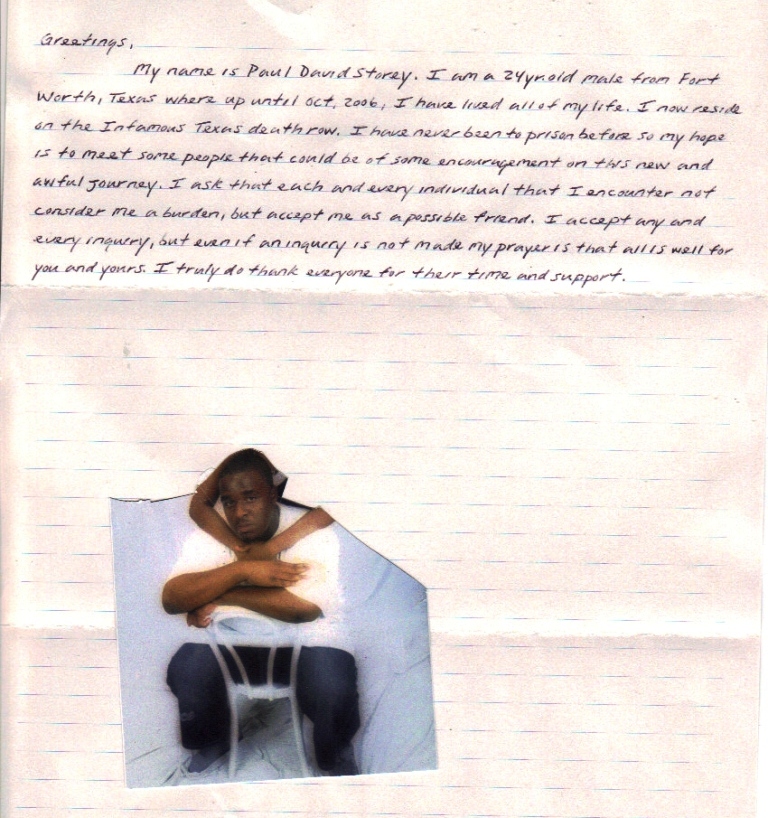 Greetings,
My name is Paul David Storey. I am a 24yr.old male from Fort
Worth, Texas where up until Oct, 2006, I have lived all of my life. I now reside
on the Infamous Texas death row. I have never been to prison before so my hope
is to meet some people that could be of some encouragement on this new and
awful journey. I ask that each and every individual that I encounter not
consider me a burden, but accept me as a possible friend. I accept any and
every inquiry, but even if an inquiry is not made my prayer is that all is well for
you and yours. I truly do thank everyone for their time and support.